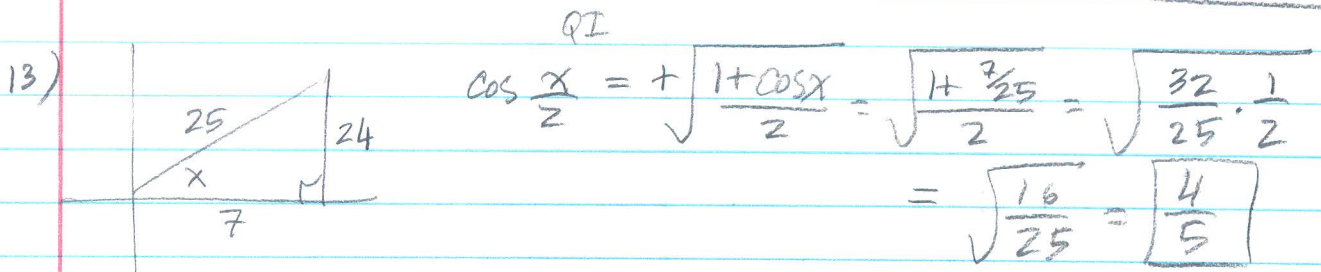 QI
13) 25 24 x 7
cos x/2 = +√((1+cosx)/2) = √((1+ 7/25)/2) = √(32/25 · 1/2)
= √(16/25) = 4/5